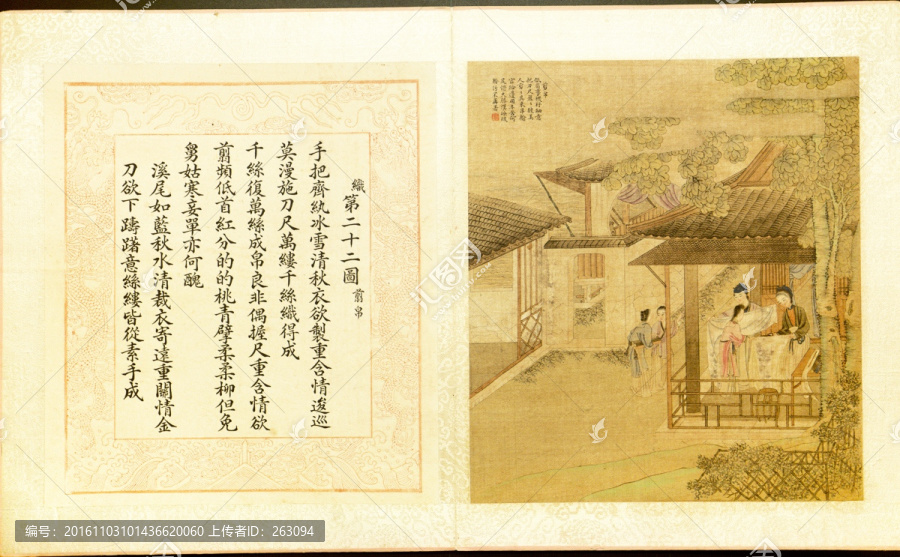 織第二十二圖 翦帛
手把齊紈冰雪清秋衣欲製重含情逡巡
莫漫施刀尺萬縷千絲織得成
千絲復萬絲成帛良非偶握尺重含情欲
翦頻低首紅分的的桃青擘柔柔柳但免
舅姑寒妾單亦何醜
溪尾如藍秋水清裁衣寄遠重關情金
刀欲下躊躇意絲縷皆從素手成
翦帛
编号: 20161103101436620060 上传者ID: 263094